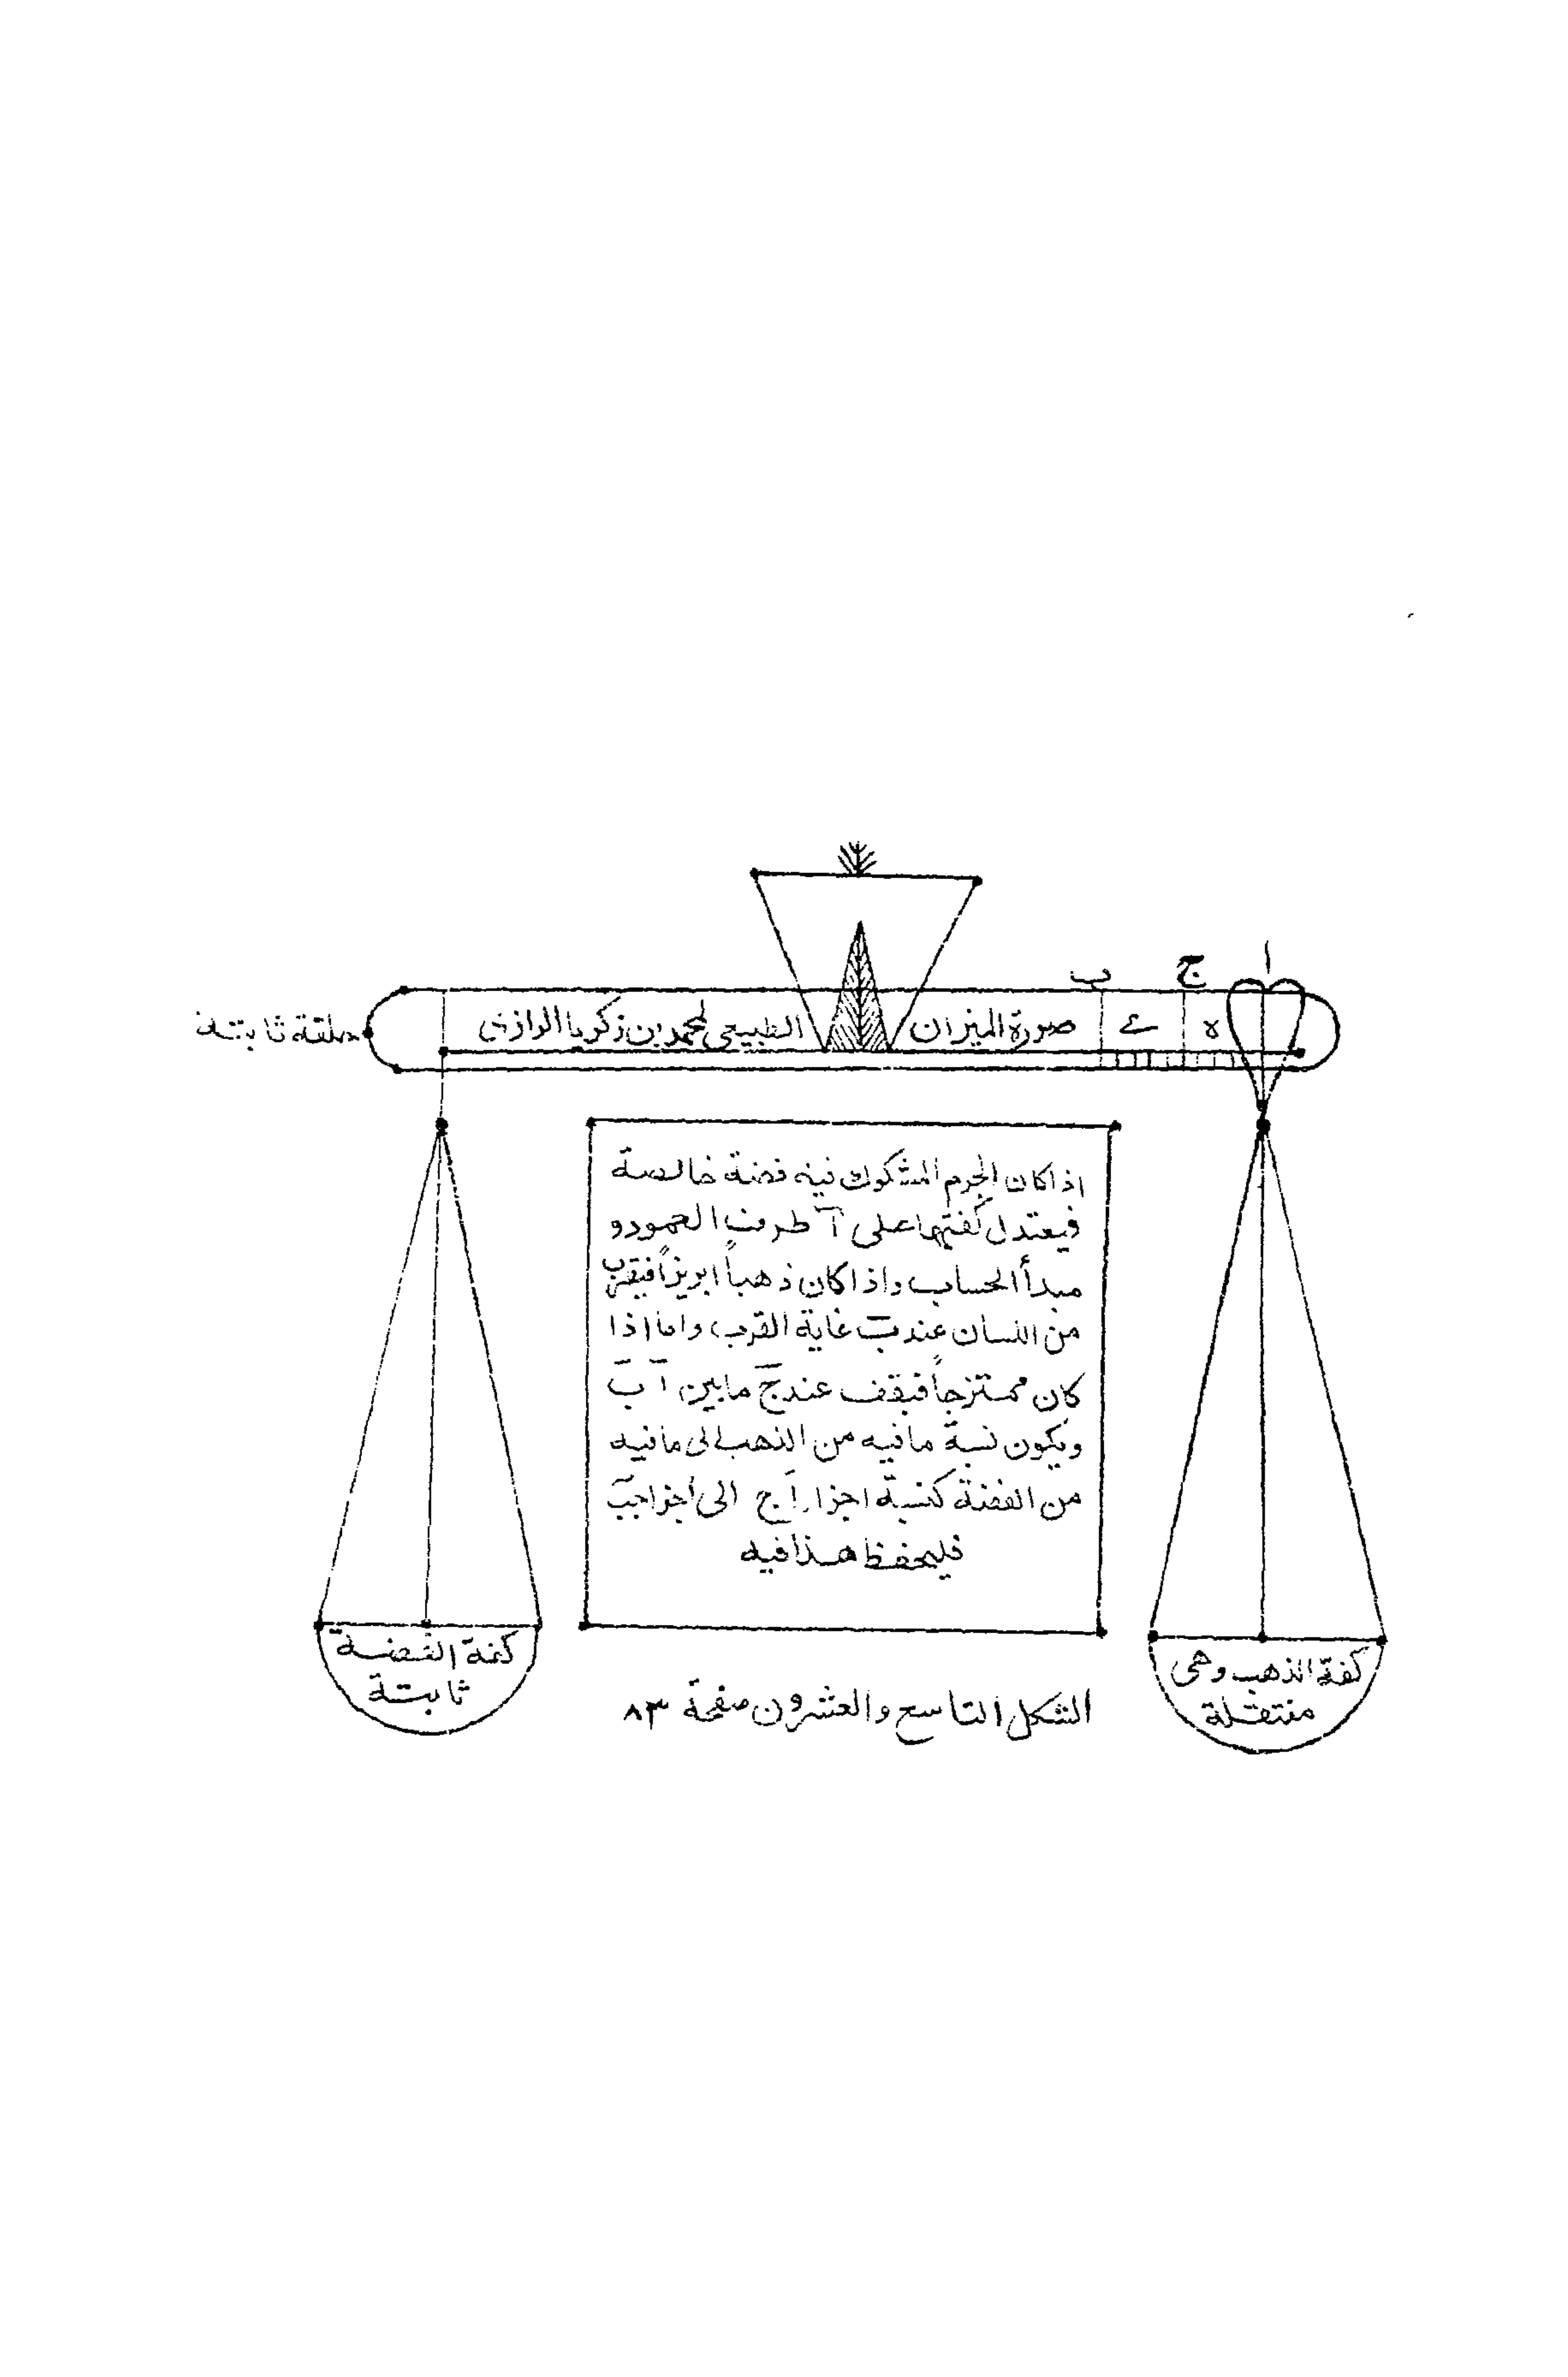 ا
ج
ب
صورة الميزان الطبيعى لمحمد بن زكريا الرازى
ه
ے
حلقة ثابتة
اذا كان الجرم المشكوك فيه فضة خالصة
فيعتدل كفتيها على آ طرف العمود و
مبدأ الحساب واذا كان ذهباً ابريزاً فيقرب
من اللسان عند بَ غاية القرب واما اذا
كان ممتزجاً فيقف عند جَ ما بين آ بَ
ويكون نسبة ما فيه من الذهب الى ما فيه
من الفضة كنسبة اجزا اَج الى اجزا جبَ
فليحفظ هذا فيه
كفة الذهب وهى
منتقلة
كفة الفضة
ثابتة
الشكل التاسع والعشرون صفحة ٨٣